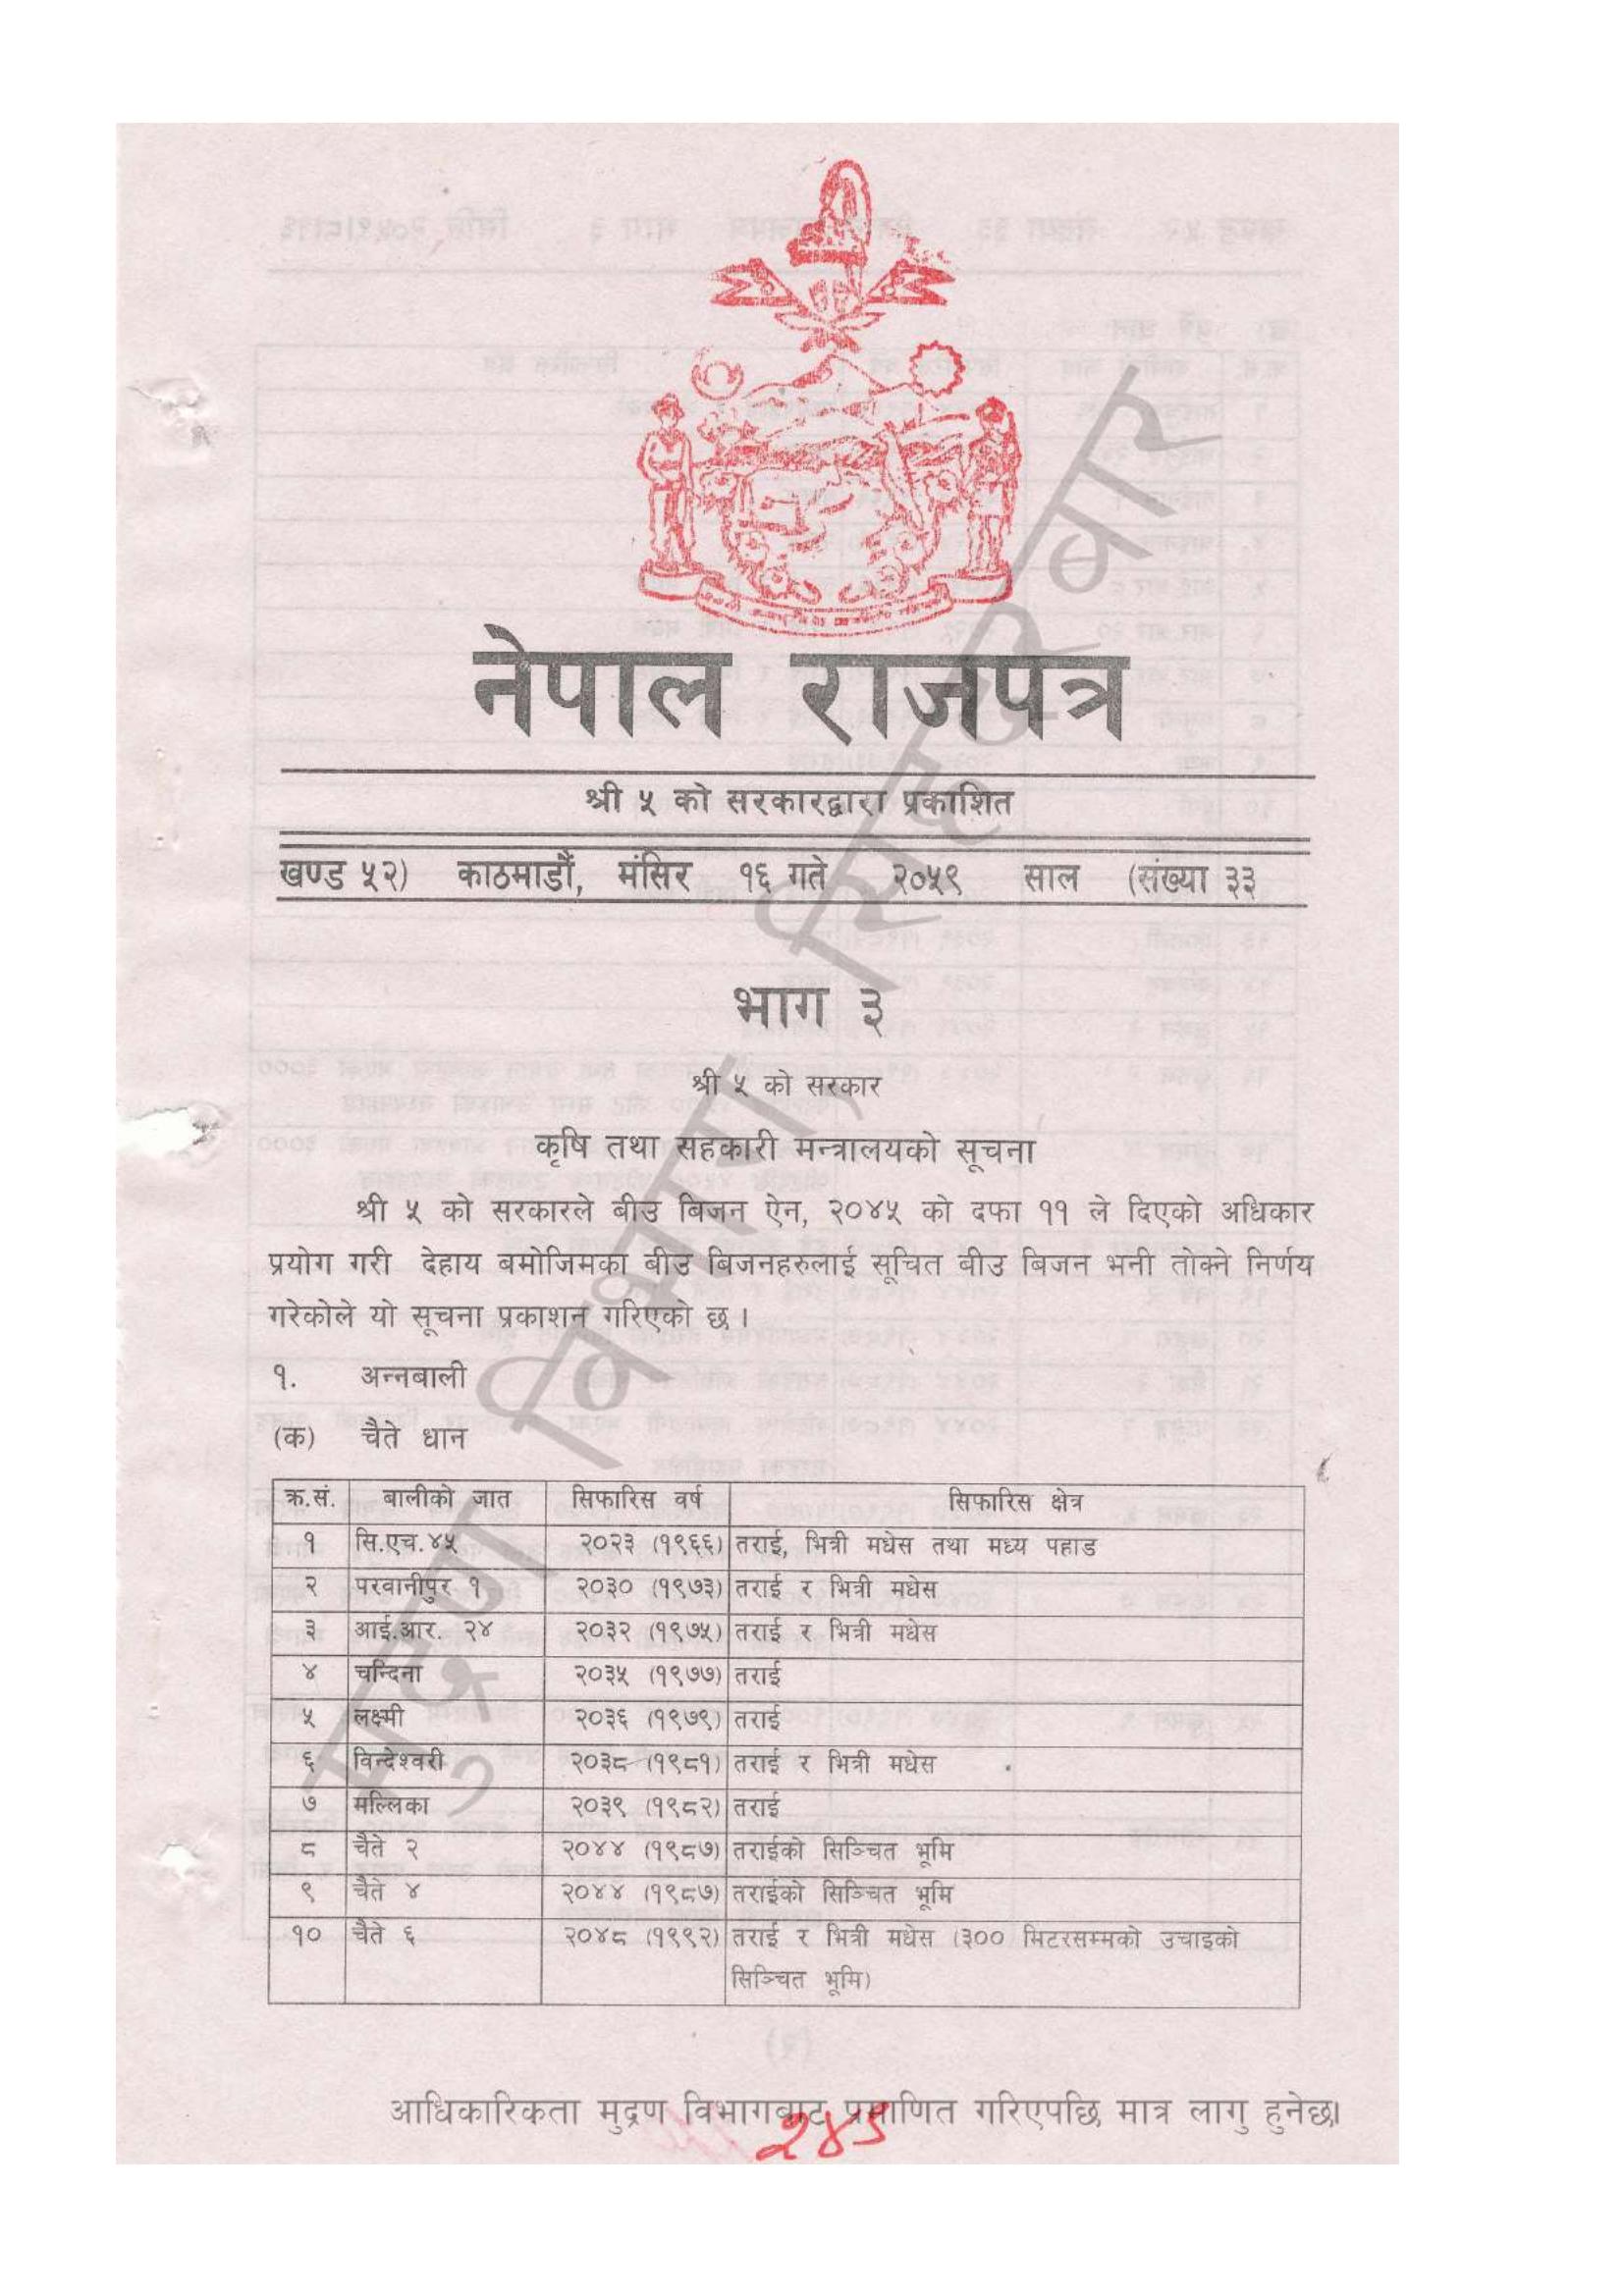 नेपाल राजपत्र
श्री ५ को सरकारद्वारा प्रकाशित
खण्ड ५२) काठमाडौं, मंसिर १६ गते २०५९ साल (संख्या ३३
भाग ३
श्री ५ को सरकार
कृषि तथा सहकारी मन्त्रालयको सूचना
श्री ५ को सरकारले बीउ बिजन ऐन, २०४५ को दफा ११ ले दिएको अधिकार
प्रयोग गरी देहाय बमोजिमका बीउ बिजनहरुलाई सूचित बीउ बिजन भनी तोक्ने निर्णय
गरेकोले यो सूचना प्रकाशन गरिएको छ ।
१. अन्नबाली
(क) चैते धान
क्र.सं. बालीको जात सिफारिस वर्ष सिफारिस क्षेत्र
१ सि.एच.४५ २०२३ (१९६६) तराई, भित्री मधेस तथा मध्य पहाड
२ परवानीपुर १ २०३० (१९७३) तराई र भित्री मधेस
३ आई.आर. २४ २०३२ (१९७५) तराई र भित्री मधेस
४ चन्दिना २०३५ (१९७७) तराई
५ लक्ष्मी २०३६ (१९७९) तराई
६ विन्देश्वरी २०३८ (१९८१) तराई र भित्री मधेस
७ मल्लिका २०३९ (१९८२) तराई
८ चैते २ २०४४ (१९८७) तराईको सिञ्चित भूमि
९ चैते ४ २०४४ (१९८७) तराईको सिञ्चित भूमि
१० चैते ६ २०४८ (१९९२) तराई र भित्री मधेस (३०० मिटरसम्मको उचाइको
सिञ्चित भूमि)
आधिकारिकता मुद्रण विभागबाट प्रमाणित गरिएपछि मात्र लागु हुनेछ।
मुद्रण विभाग, सिंहदरवार